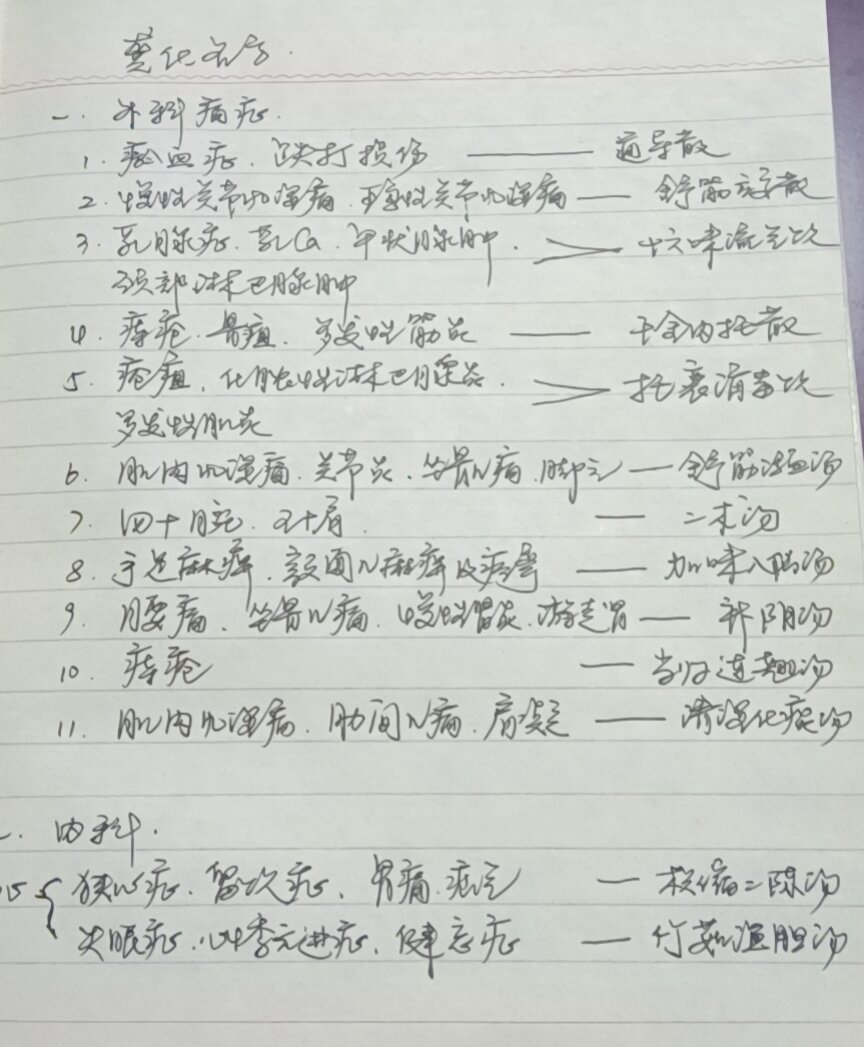 一. 外科病症.
1. 瘀血症. 跌打损伤 —— 通导散
2. 慢性关节风湿痛. 关节风湿痛 —— 舒筋立安散
3. 乳腺症. 乳Ca. 甲状腺肿. 十六味流气饮
颈部淋巴腺肿
4. 痔疮. 骨疽. 多发性筋炎 —— 千金内托散
5. 疮疽. 化脓性淋巴腺炎. 托裹消毒饮
多发性肌炎
6. 肌肉风湿痛. 关节炎. 坐骨N痛. 脚气 — 舒筋活血汤
7. 四十腕. 五十肩. — 二术汤
8. 手足麻痹. 颜面N麻痹及痉挛 —— 加味八脉汤
9. 腰痛. 坐骨N痛. 慢性肾炎. 游走肾 — 补阴汤
10. 痔疮 —— 当归连翘汤
11. 肌肉风湿痛. 肋间N痛. 肩凝 —— 清湿化痰汤
. 内科.
狭心症. 留饮症. 胃痛. — 枳缩二陈汤
失眠症. 心季亢进症. 健忘症 —— 竹茹温胆汤